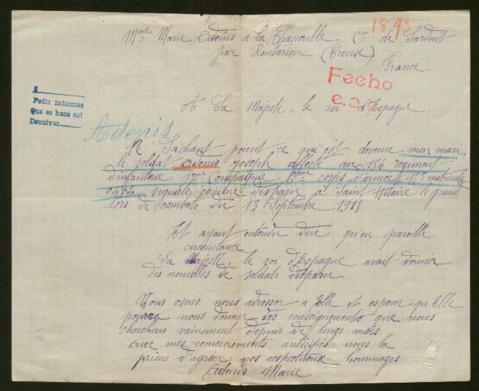 Mme Marie Adonis a la Chapouille. Cne de Sardent
par Pontarion (Creuse)
France
1893
Fecho
e.o.
A
Pedir informes
Que se haga así
Devolver
Adonis
A Sa Majesté, le roi d'Espagne
Ne Sachant point ce qu'est devenu mon mari,
le soldat Adonis Joseph du 154 régiment
d'infanterie compagnie corps d'armée No matricule
signalé comme disparu à Saint Hilaire le grand
lors de combats du 13 Septembre 1915
Et ayant entendu dire qu'en pareille
circonstance
Sa Majesté, le roi d'Espagne avait donner
des nouvelles de soldats disparu.
Nous osons nous adresser a Elle et esperer qu'Elle
pourra nous donner des renseignements que nous
cherchons vainement depuis de longs mois.
Avec mes remerciements anticipés nous la
prions d'agréer nos respectueux hommages
Adonis Marie